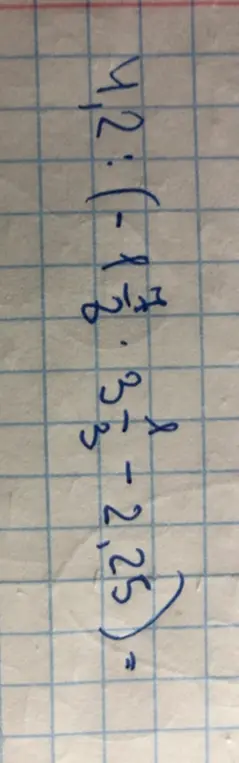 4,2 : (- 1 7/8 · 3 1/3 - 2,25) =